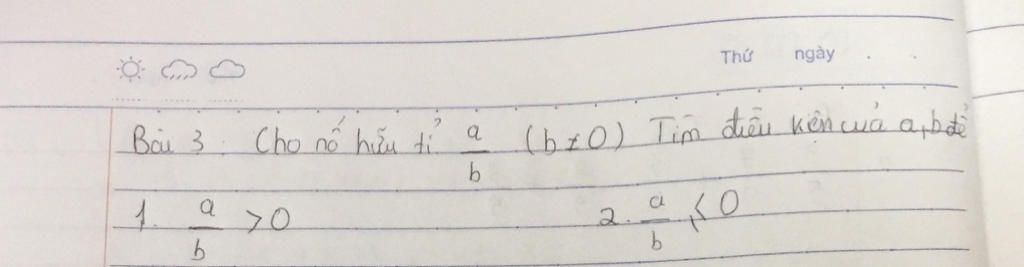 Thứ ngày . .
Bài 3 : Cho số hữu tỉ a/b (b ≠ 0) Tìm điều kện của a, b để
1. a/b > 0 2. a/b < 0